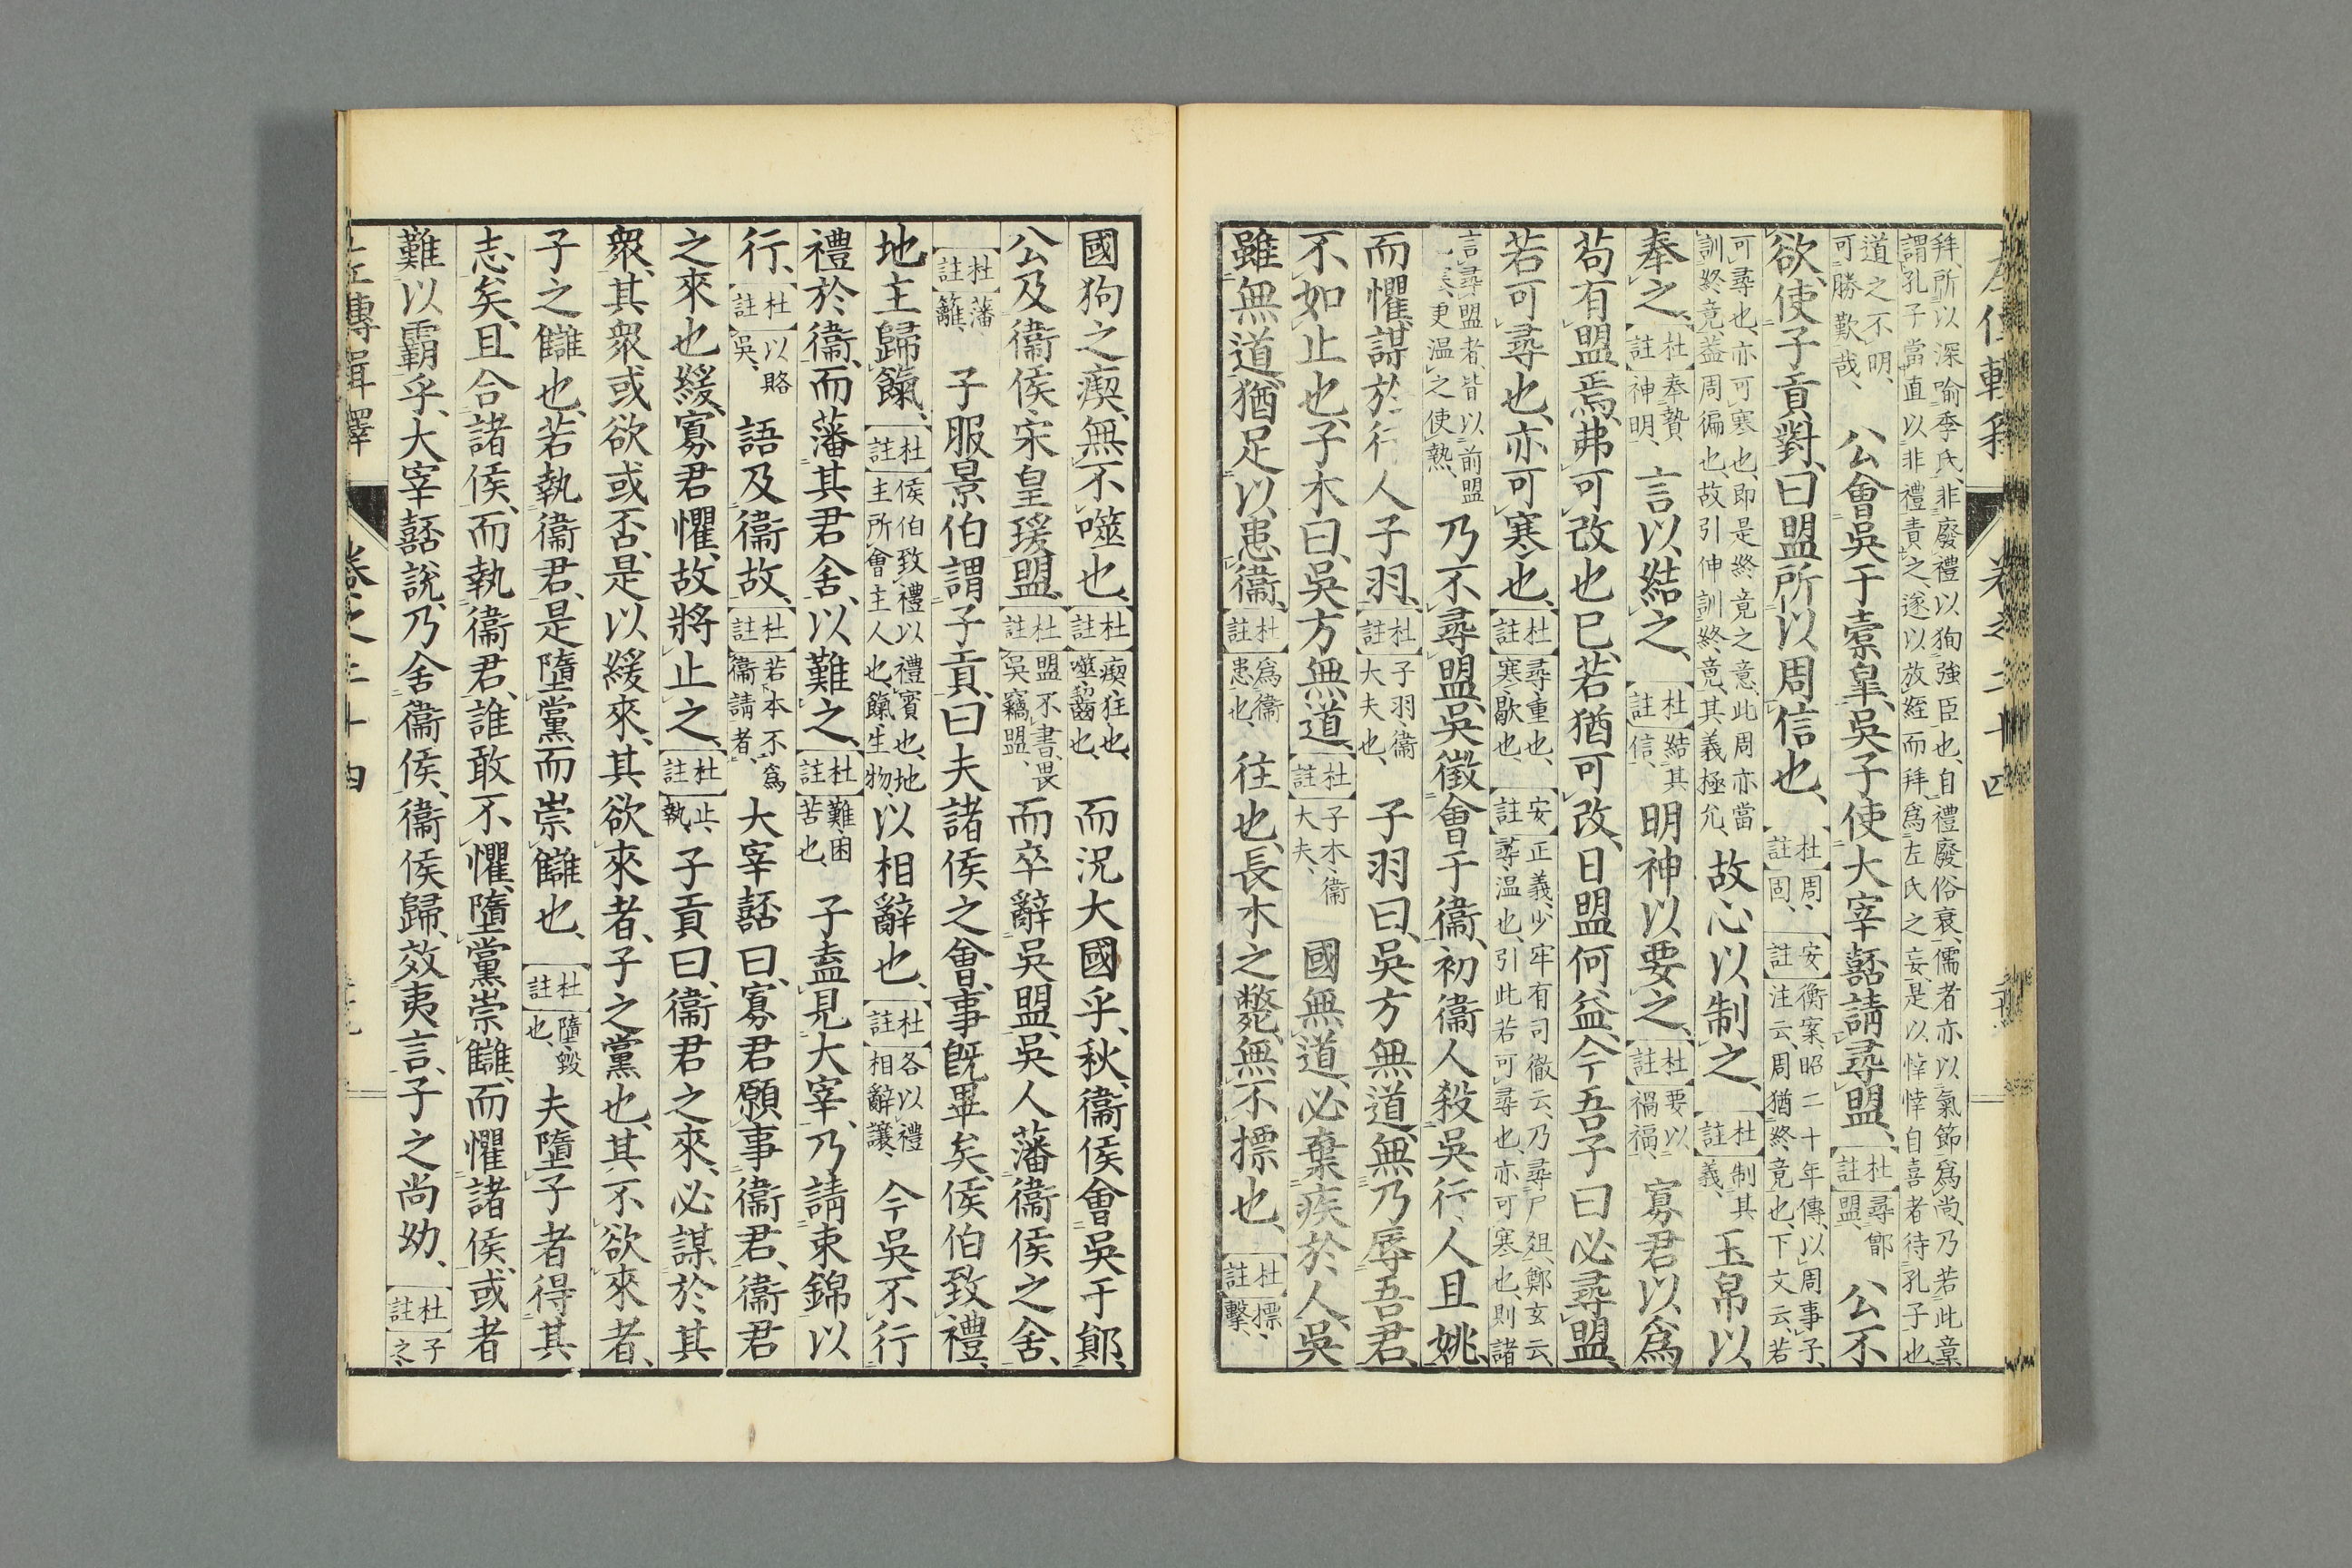 左傳輯釋 卷之二十四
拜、所以深喻季氏、非廢禮以狥強臣也、自禮廢、俗衰、儒者亦以氣節爲尚、乃若此章
謂孔子當直以非禮責之、遂以放絰而拜、爲左氏之妄、是以悻悻自喜者待孔子也
道之不明、可勝歎哉、公會吳于橐皐、吳子使大宰嚭請尋盟、杜註尋鄫盟、公不
欲、使子貢對、曰盟所以周信也、杜註周、固、安註衡案、昭二十年傳、以周事子、注云、周猶終竟也、下文云、若
可尋也、亦可寒也、即是終竟之意、此周亦當訓終竟、蓋周徧也、故引伸訓終竟、其義極允、故心以制之、杜註制其義、玉帛以
奉之、杜註奉贄神明、言以結之、杜註結其信、明神以要之、杜註要以禍福、寡君以爲
苟有盟焉、弗可改也已、若猶可改、日盟何益、今吾子曰必尋盟、
若可尋也、亦可寒也、杜註尋、重也、寒、歇也、安註正義、少牢有司徹云、乃尋尸俎、鄭玄云、尋、温也、引此若可尋也、亦可寒也、則諸
言尋盟者、皆以前盟寒、更温之使熱、乃不尋盟、吳徵會于衞、初衞人殺吳行人且姚、
而懼、謀於行人子羽、杜註子羽、衞大夫也、子羽曰、吳方無道、無乃辱吾君、
不如止也、子木曰、吳方無道、杜註子木、衞大夫、國無道、必棄疾於人、吳
雖無道、猶足以患衞、杜註爲衞患也、往也、長木之斃、無不摽也、杜註摽、擊、
國狗之瘈、無不噬也、杜註瘈、狂也、噬、齧也、而況大國乎、秋、衞侯會吳于鄖、
公及衞侯宋皇瑗盟、杜註盟不書、畏吳竊盟、而卒辭吳盟、吳人藩衞侯之舍、
杜註藩、籬、子服景伯謂子貢、曰夫諸侯之會、事既畢矣、侯伯致禮、
地主歸餼、杜註侯伯致禮以禮賓也、地主所會主人也、餼、生物、以相辭也、杜註各以禮相辭讓、今吳不行
禮於衞、而藩其君舍、以難之、杜註難、困苦也、子盍見大宰、乃請束錦以
行、杜註以賂吳、語及衞故、杜註若本不爲衞請者、大宰嚭曰、寡君願事衞君、衞君
之來也緩、寡君懼、故將止之、杜註止、執、子貢曰、衞君之來、必謀於其
衆、其衆或欲或否、是以緩來、其欲來者、子之黨也、其不欲來者、
子之讎也、若執衞君、是墮黨而崇讎也、杜註墮、毀也、夫墮子者得其
志矣、且合諸侯、而執衞君、誰敢不懼、墮黨崇讎、而懼諸侯、或者
難以霸乎、大宰嚭說、乃舍衞侯、衞侯歸、效夷言、子之尚幼、杜註子之、
左傳輯釋 卷之二十四